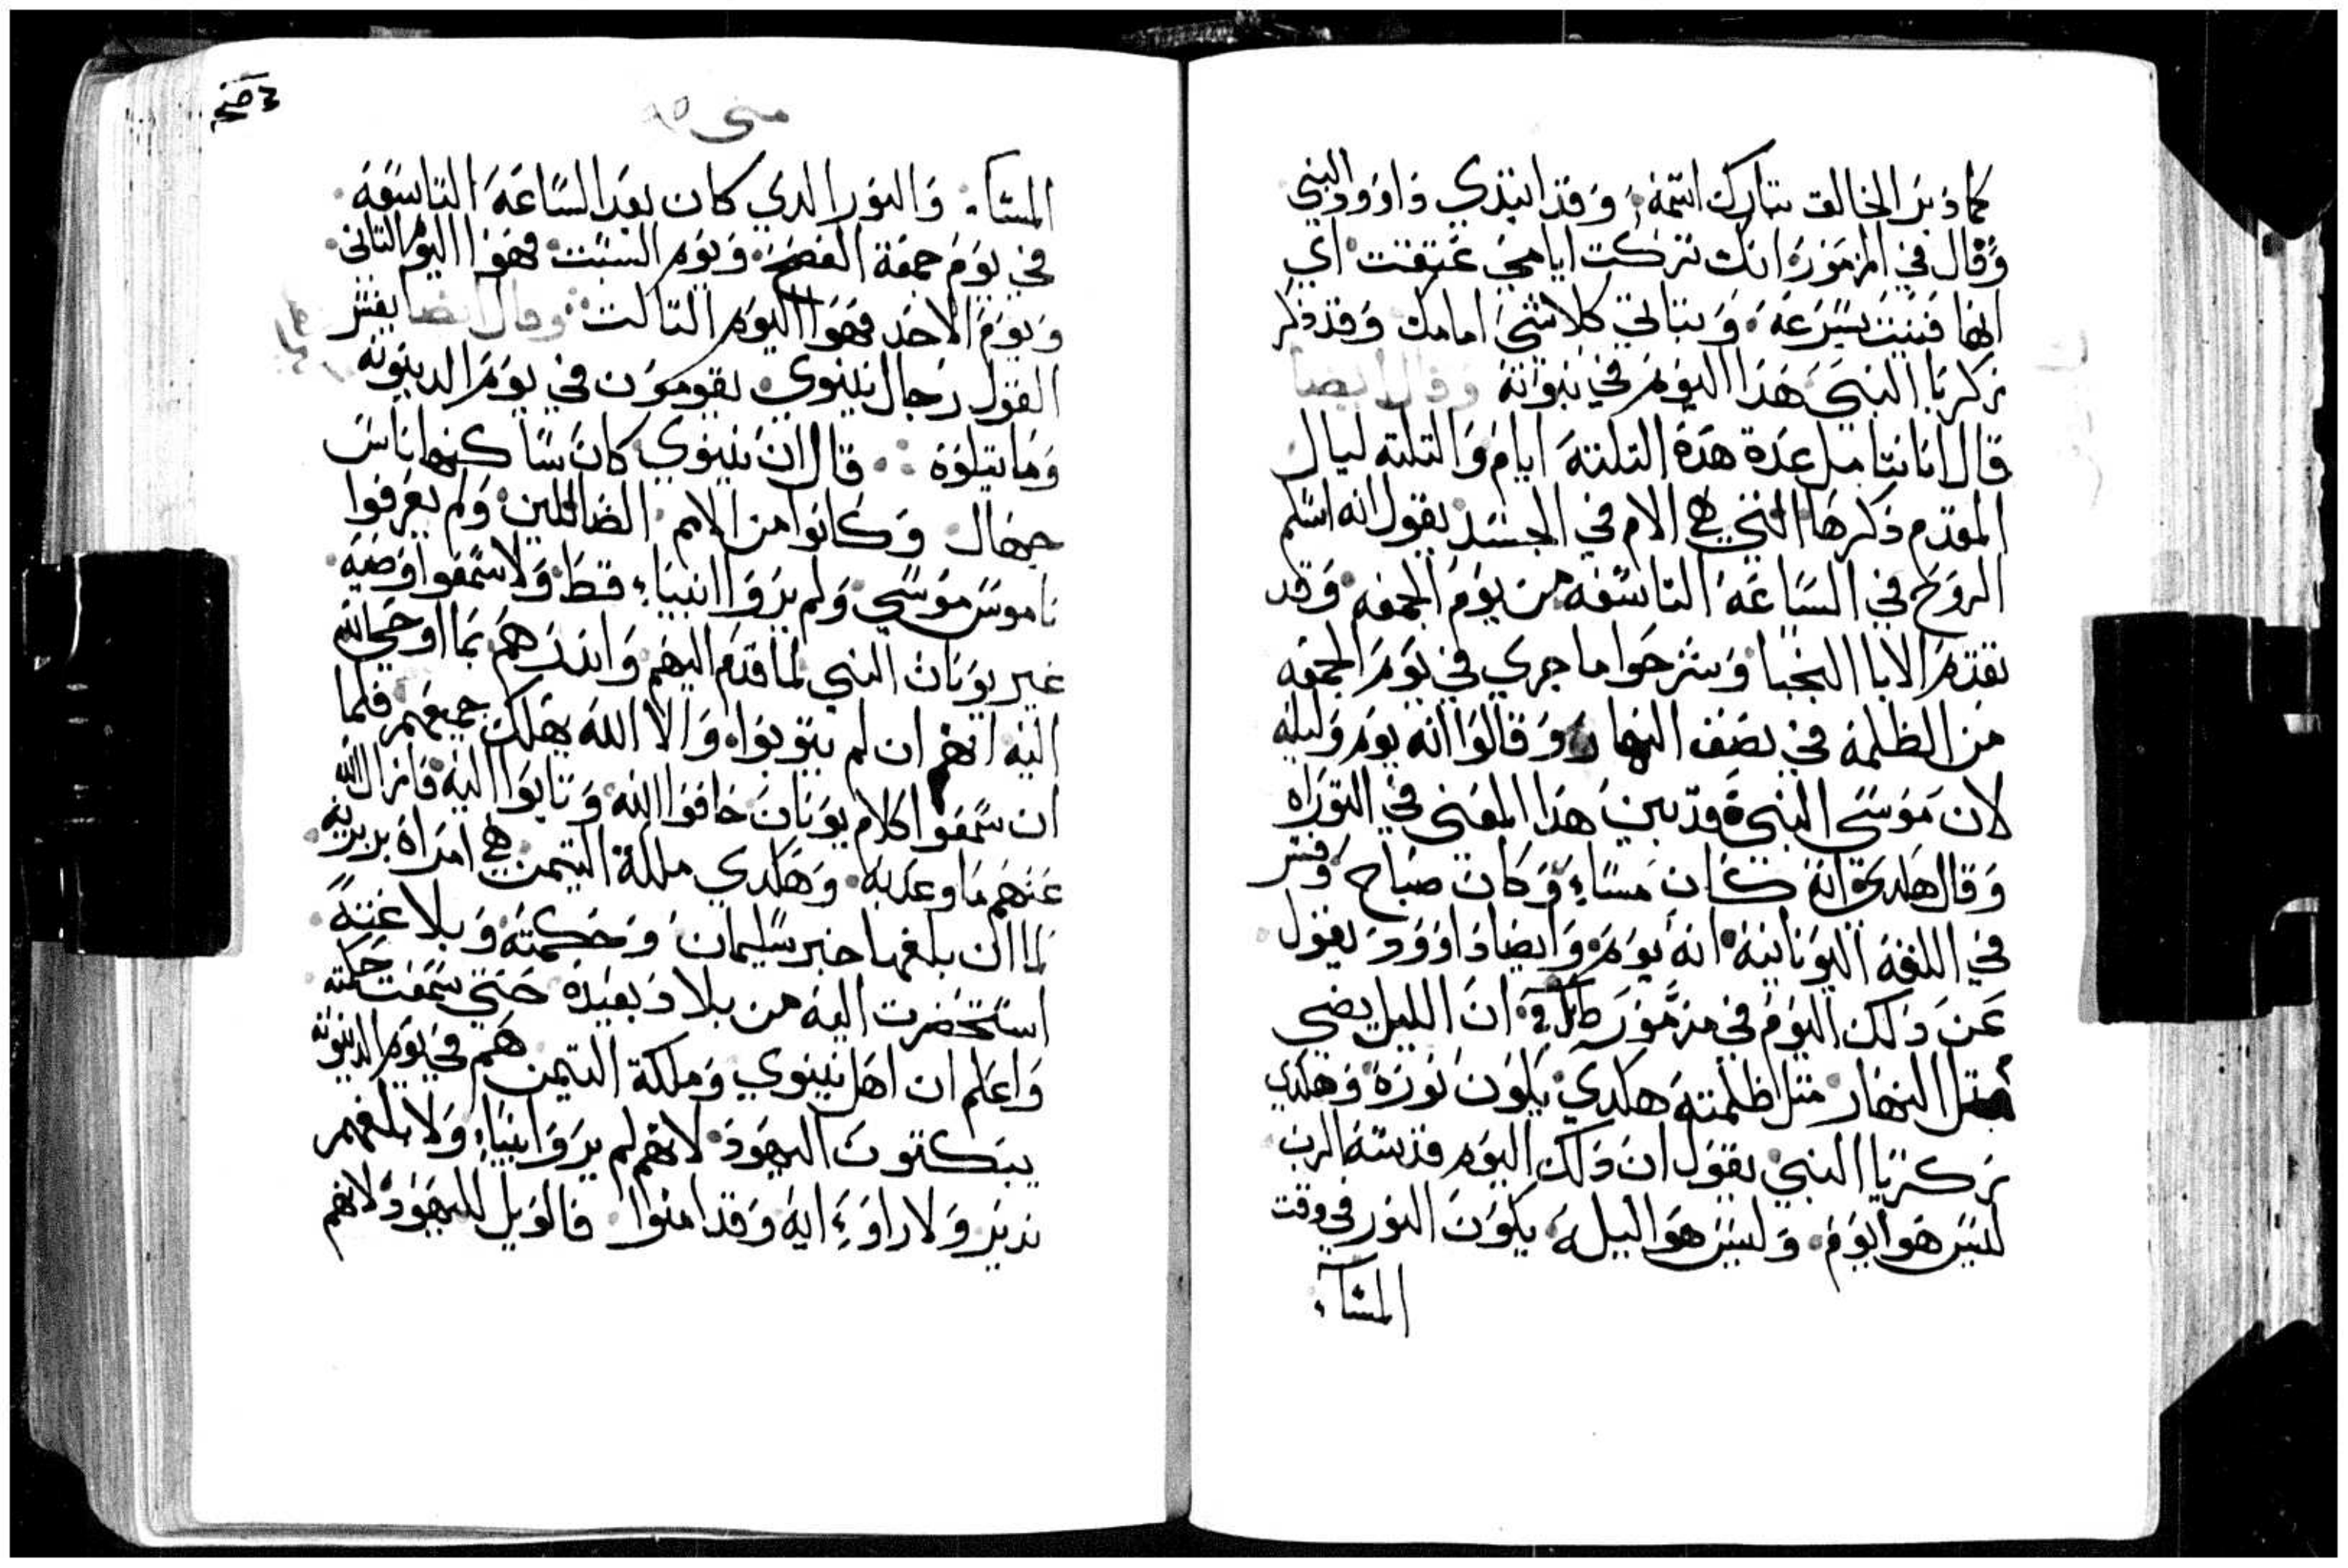 كما دبر الخالق تبارك اسمه وقد ابتدي داوود النبي
وقال في المزمور انك تركت ايامي عتيقت اي
انها فنيت بسرعة وتباتي كلا شي امامك وقد ذكر
زكريا النبي هذا اليوم في نبواته وقال ايضا
قال انا نتامل عدة هده التلتة ايام والتلته ليال
المقدم ذكرها التي هي الام في الجسد يقول انه اسلم
الروح في الساعة التاسعة من يوم الجمعه وقد
تقدم الابا النجبا وشرحوا ما جري في يوم الجمعه
من الظلمة في نصف النهار وقالوا انه يوم وليله
لان موسى النبي قد بين هذا المعني في التوراه
وقال هكدي انه كان مساء وكان صباح وفسر
في اللغة اليونانية انه يوم وايضا داوود يقول
عن دلك اليوم في مزمور ان الليل يضي
مثل النهار مثل ظلمته هكدي يكون نوره وهكدي
زكريا النبي يقول ان دلك اليوم قدسة الرب
ليس هو يوم وليس هو اليلة يكون النور في وقت
المساء
متى
المساء والنور الدي كان بعد الساعة التاسعة
في يوم جمعة الفصح ويوم السبت فهوا اليوم التاني
ويوم الاحد فهوا اليوم التالت وقال ايضا يفسر
القول رجال نينوي يقومون في يوم الدينونه
وما يتلوه قال ان نينوي كان ساكنها ناس
جهال وكانوا من الامم الضاللين ولم يعرفوا
ناموس موسي ولم يروا انبياء قط ولا سمعوا وصية
غير يونان النبي لما قدم اليهم واندرهم بما اوحي الله
اليه انهم ان لم يتوبوا والا الله يهلك جميعهم فلما
ان سمعوا كلام يونان خافوا الله وتابوا اليه فازال الله
عنهم ما وعد به وهكدي ملكة التيمن هي امراة بربرية
لما ان بلغها خبر سليمان وحكمته وبلاغته
استحضرت اليه من بلاد بعيدة حتي سمعت حكمته
واعلم ان اهل نينوي وملكة التيمن هم في يوم الدينونة
يبكتون اليهود لانهم لم يروا انبياء ولا بلغهم
ندير ولا راوء اية وقد امنوا فالويل لليهود لانهم